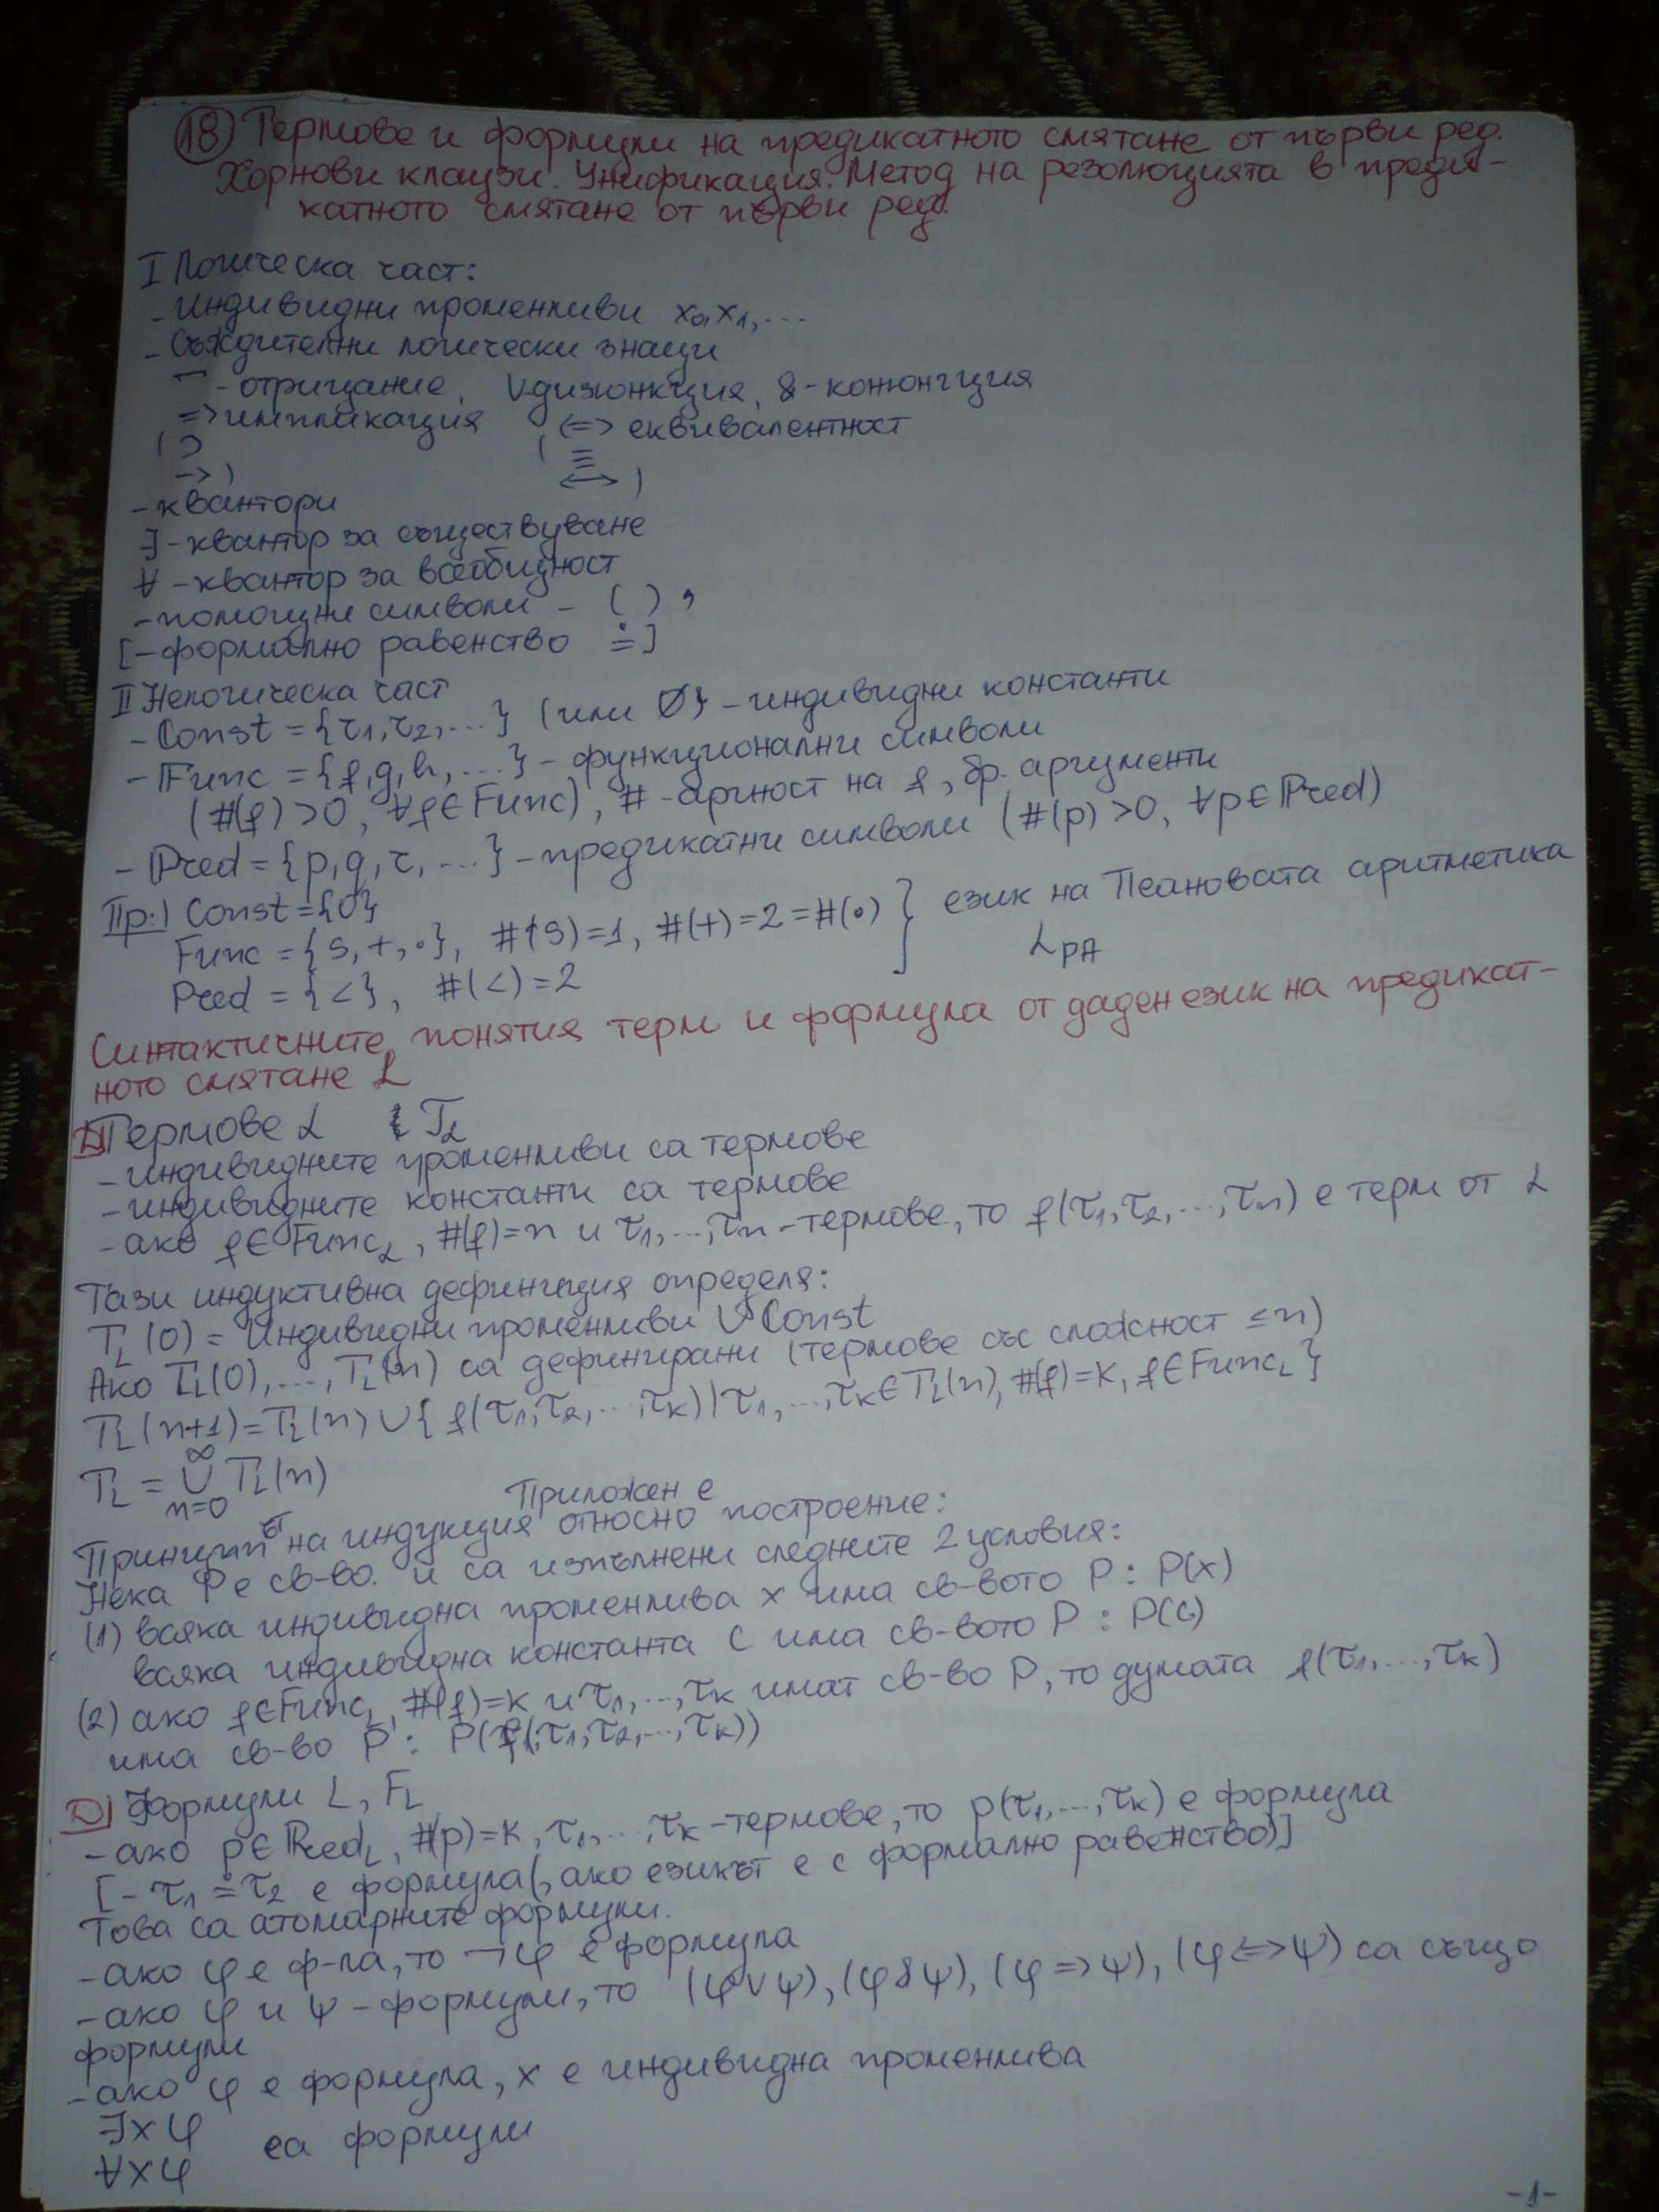 18 Термове и формули на предикатното смятане от първи ред.
Хорнови клаузи. Унификация. Метод на резолюцията в преди-
катното смятане от първи ред.
I Логическа част:
- индивидни променливи x₀, x₁, ...
- Съждителни логически знаци
¬ - отрицание, ∨ дизюнкция, & - конюнкция
=> импликация <=> еквивалентност
( ⊃ ( ≡
→ ) ↔ )
- квантори
∃ - квантор за съществуване
∀ - квантор за всеобщност
- помощни символи - ( ) ,
[- формално равенство ≐]
II Нелогическа част
- Const = {τ₁, τ₂, ...} (или ∅} - индивидни константи
- Func = {f, g, h, ...} - функционални символи
(#(f) > 0, ∀f ∈ Func), # - арност на f, бр. аргументи
- Pred = {p, q, r, ...} - предикатни символи (#(p) > 0, ∀p ∈ Pred)
Пр:) Const = {0}
Func = {S, +, •}, #(S) = 1, #(+) = 2 = #(•) } език на Пеановата аритметика
Pred = {<}, #(<) = 2 L_PA
Синтактичните понятия терм и формула от даден език на предикат-
ното смятане L
D) Термове L T_L
- индивидните променливи са термове
- индивидните константи са термове
- ако f ∈ Func_L, #(f) = n и τ₁, ..., τₙ - термове, то f(τ₁, τ₂, ..., τₙ) е терм от L
Тази индуктивна дефиниция определя:
T_L(0) = Индивидни променливи ∪ Const
Ако T_L(0), ..., T_L(n) са дефинирани (термове със сложност ≤ n)
T_L(n+1) = T_L(n) ∪ { f(τ₁, τ₂, ..., τₖ) | τ₁, ..., τₖ ∈ T_L(n), #(f) = k, f ∈ Func_L }
T_L = ∞∪n=0 T_L(n)
Приложен е
Принципът на индукция относно построение:
Нека P е св-во. и са изпълнени следните 2 условия:
(1) всяка индивидна променлива x има св-вото P : P(x)
всяка индивидна константа c има св-вото P : P(c)
(2) ако f ∈ Func_L, #(f) = k и τ₁, ..., τₖ имат св-во P, то думата f(τ₁, ..., τₖ)
има св-во P : P(f(τ₁, τ₂, ..., τₖ))
D) Формули L, F_L
- ако p ∈ Pred_L, #(p) = k, τ₁, ..., τₖ - термове, то p(τ₁, ..., τₖ) е формула
[- τ₁ ≐ τ₂ е формула (, ако езикът е с формално равенство)]
Това са атомарните формули.
- ако φ е ф-ла, то ¬φ е формула
- ако φ и ψ - формули, то (φ ∨ ψ), (φ & ψ), (φ => ψ), (φ <=> ψ) са също
формули
- ако φ е формула, x е индивидна променлива
∃xφ са формули
∀xφ
-1-